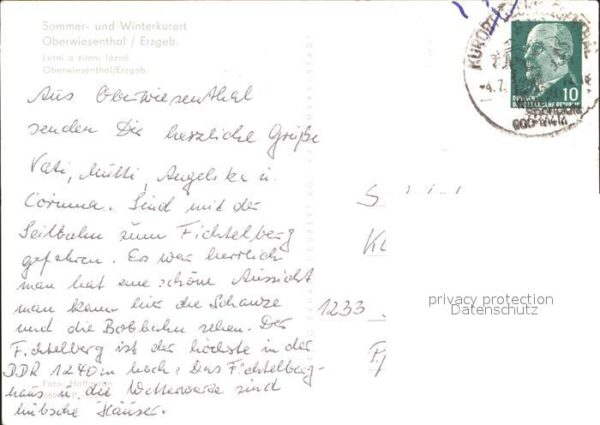 Sommer- und Winterkurort
Oberwiesenthal / Erzgeb.
Letní a zimní lázně
Oberwiesenthal/Erzgeb.
Aus Oberwiesenthal
senden Dir herzliche Grüße
Vati, Mutti, Angelika u.
Corinna. Sind mit der
Seilbahn zum Fichtelberg
gefahren. Es war herrlich
man hat eine schöne Aussicht
man kann hier die Schanze
und die Bobbahn sehen. Der
Fichtelberg ist der höchste in der
DDR 1240 m hoch. Das Fichtelberg-
haus u. die Wetterwarte sind
hübsche Häuser.
Foto: Hoffmann
KURORT OBERWIESENTHAL
-4.7.
10
DEUTSCHE DEMOKRATISCHE REPUBLIK
1233
privacy protection
Datenschutz